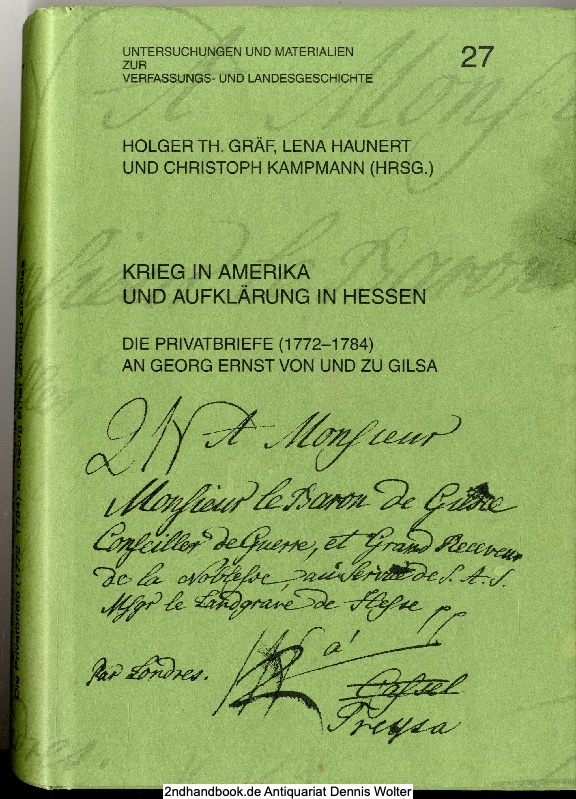 UNTERSUCHUNGEN UND MATERIALIEN
ZUR
VERFASSUNGS- UND LANDESGESCHICHTE
27
HOLGER TH. GRÄF, LENA HAUNERT
UND CHRISTOPH KAMPMANN (HRSG.)
KRIEG IN AMERIKA
UND AUFKLÄRUNG IN HESSEN
DIE PRIVATBRIEFE (1772–1784)
AN GEORG ERNST VON UND ZU GILSA
A Monsieur
Monsieur le Baron de
Conseiller de Guerre, et Grand Receveur
de la Noblesse, au Service de S. A. S.
Msgr le Landgrave de Hesse
à
Par Londres.
Cassel
Treysa
Die Privatbriefe (1772–1784) an Georg Ernst von und zu Gilsa
2ndhandbook.de Antiquariat Dennis Wolter